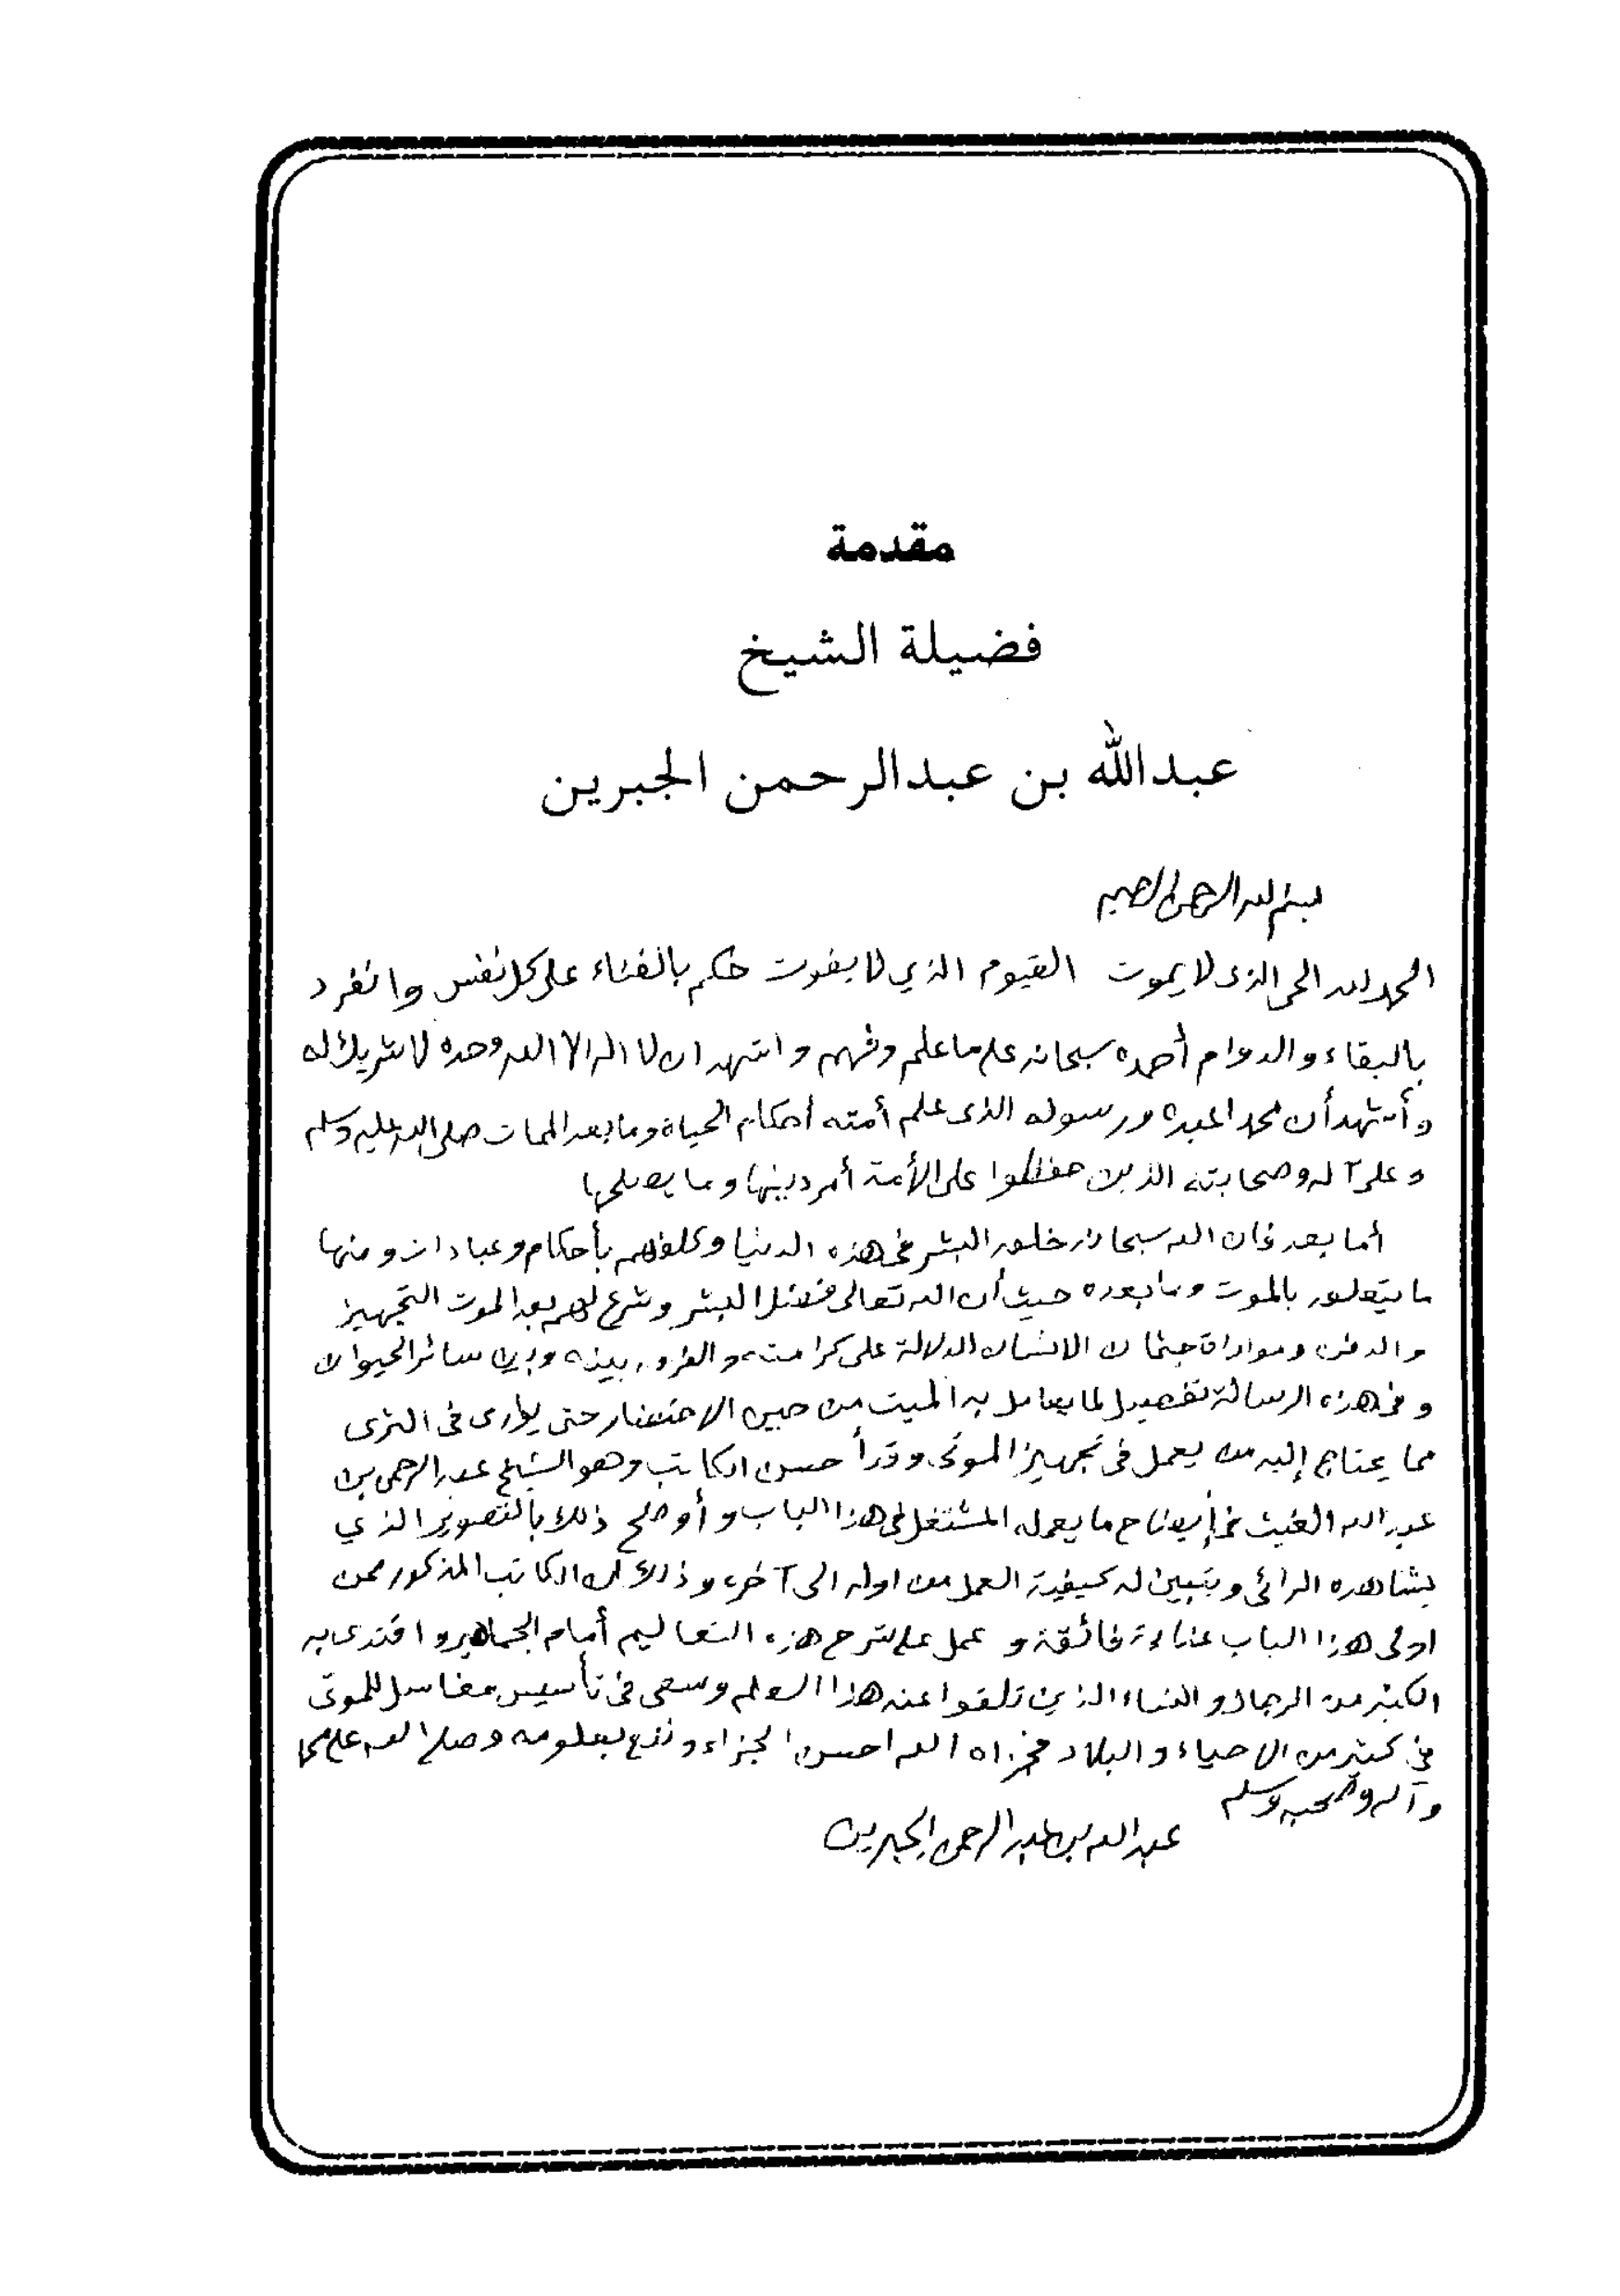 مقدمة
فضيلة الشيخ
عبدالله بن عبدالرحمن الجبرين
بسم الله الرحمن الرحيم
الحمد لله الحي الذي لا يموت القيوم الذي لا يفوت حكم بالفناء على كل نفس وانفرد
بالبقاء والدوام أحمده سبحانه على ما علم وفهم واشهد ان لا اله الا الله وحده لا شريك له
وأشهد أن محمدا عبده ورسوله الذي علم أمته أحكام الحياة وما بعد الممات صلى الله عليه وسلم
وعلى آله وصحابته الذين حفظوا على الأمة أمر دينها وما يصلحها
أما بعد فان الله سبحانه خلق البشر في هذه الدنيا وكلفهم بأحكام وعبادات ومنها
ما يتعلق بالموت وما بعده حيث أن الله تعالى فضل البشر وشرع لهم بعد الموت التجهيز
والدفن ومواراة جثمان الانسان للدلالة على كرامته والفرق بينه وبين سائر الحيوان
وفي هذه الرسالة تفصيل لما يعامل به الميت من حين الاحتضار حتى يوارى في الثرى
مما يحتاج إليه من يعمل في تجهيز الموتى وقد أحسن الكاتب وهو الشيخ عبد الرحمن بن
عبد الله الغيث في إيضاح ما يعمله المشتغل في هذا الباب وأوضح ذلك بالتصوير الذي
يشاهده الرائي ويتبين له كيفية العمل من اوله الى آخره وذلك ان الكاتب المذكور ممن
اولى هذا الباب عناية فائقة و عمل على شرح هذه التعاليم أمام الجماهير واقتدى به
الكثير من الرجال والنساء الذين تلقوا عنه هذا العلم وسعى في تأسيس مغاسل للموتى
في كثير من الاحياء والبلاد فجزاه الله احسن الجزاء ونفع بعلومه وصلى الله على محمد
وآله وصحبه وسلم
عبد الله بن عبد الرحمن الجبرين